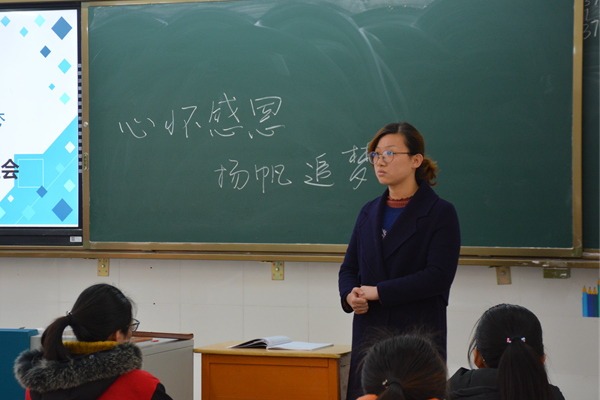 心怀感恩
扬帆追梦
会